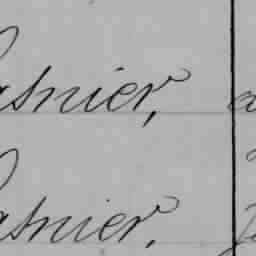 asnier,
asnier,